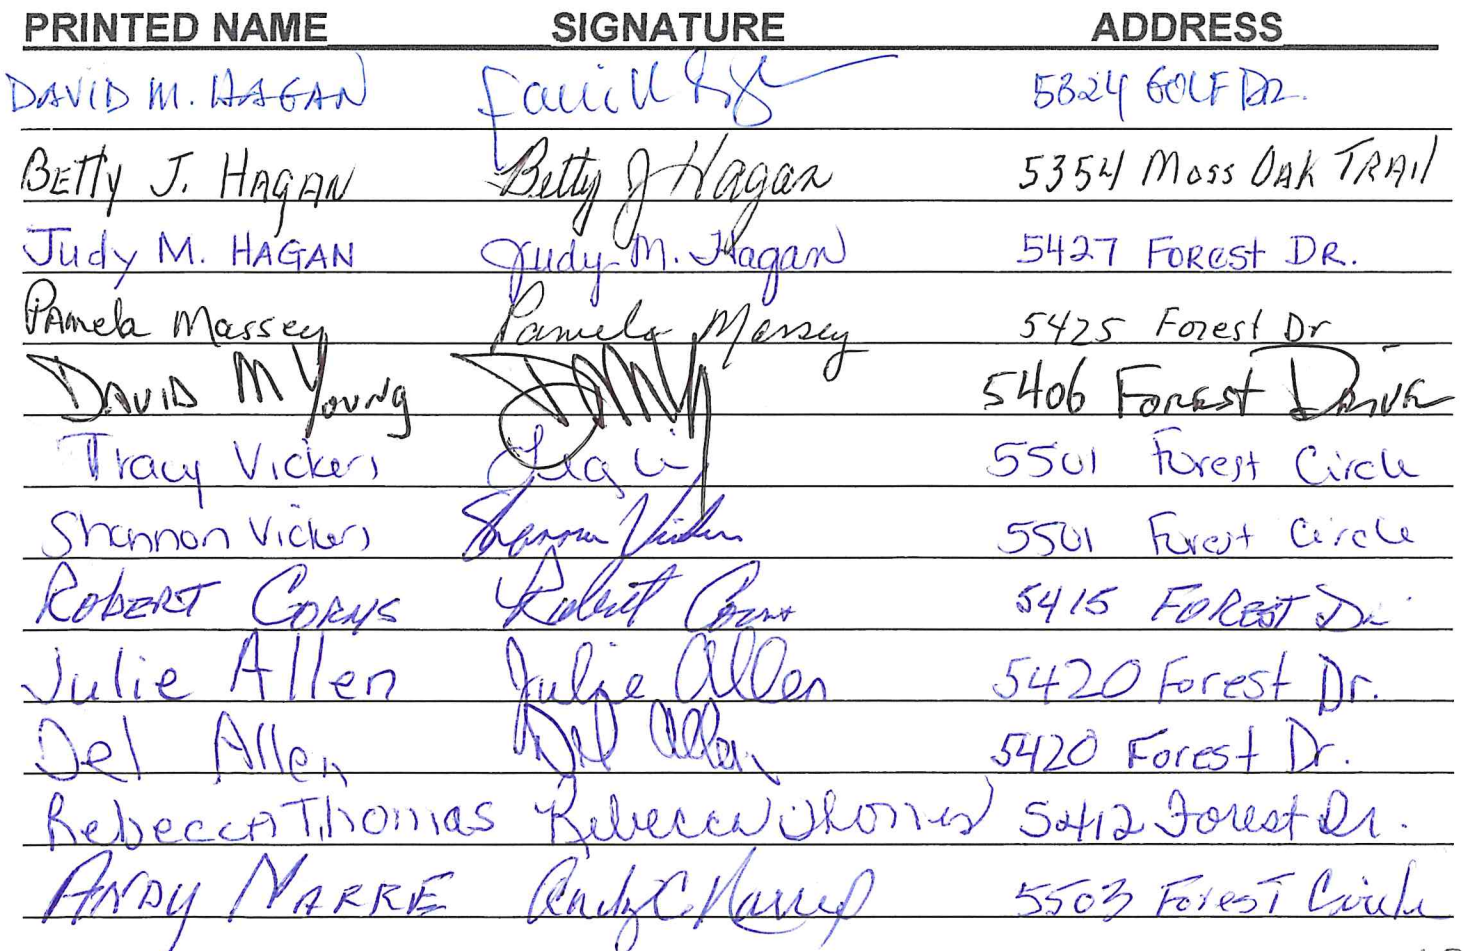 PRINTED NAME SIGNATURE ADDRESS
DAVID M. HAGAN 5324 GOLF DR.
BETTY J. HAGAN Betty J Hagan 5354 Moss OAK TRAIL
Judy M. HAGAN Judy M. Hagan 5427 FOREST DR.
PAmela Massey Pamela Massey 5425 Forest Dr
DAVID M YOUNG DMY 5406 FOREST DRIVE
Tracy Vickers 5501 Forest Circle
Shannon Vickers Shannon Vickers 5501 Forest Circle
ROBERT CORNS Robert Corns 5415 FOREST Dr
Julie Allen Julie Allen 5420 Forest Dr.
Del Allen Del Allen 5420 Forest Dr.
Rebecca Thomas Rebecca Thomas 5412 Forest Dr.
ANDY Andy C 5503 FOREST Circle